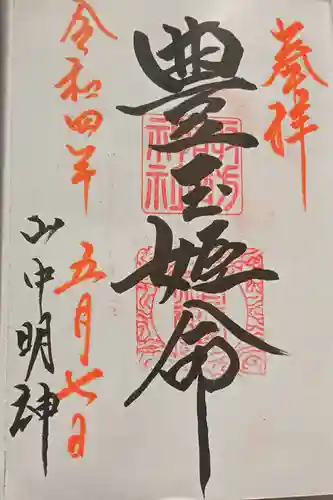 奉拝
豊玉姫命
令和四年
五月七日
山中明神